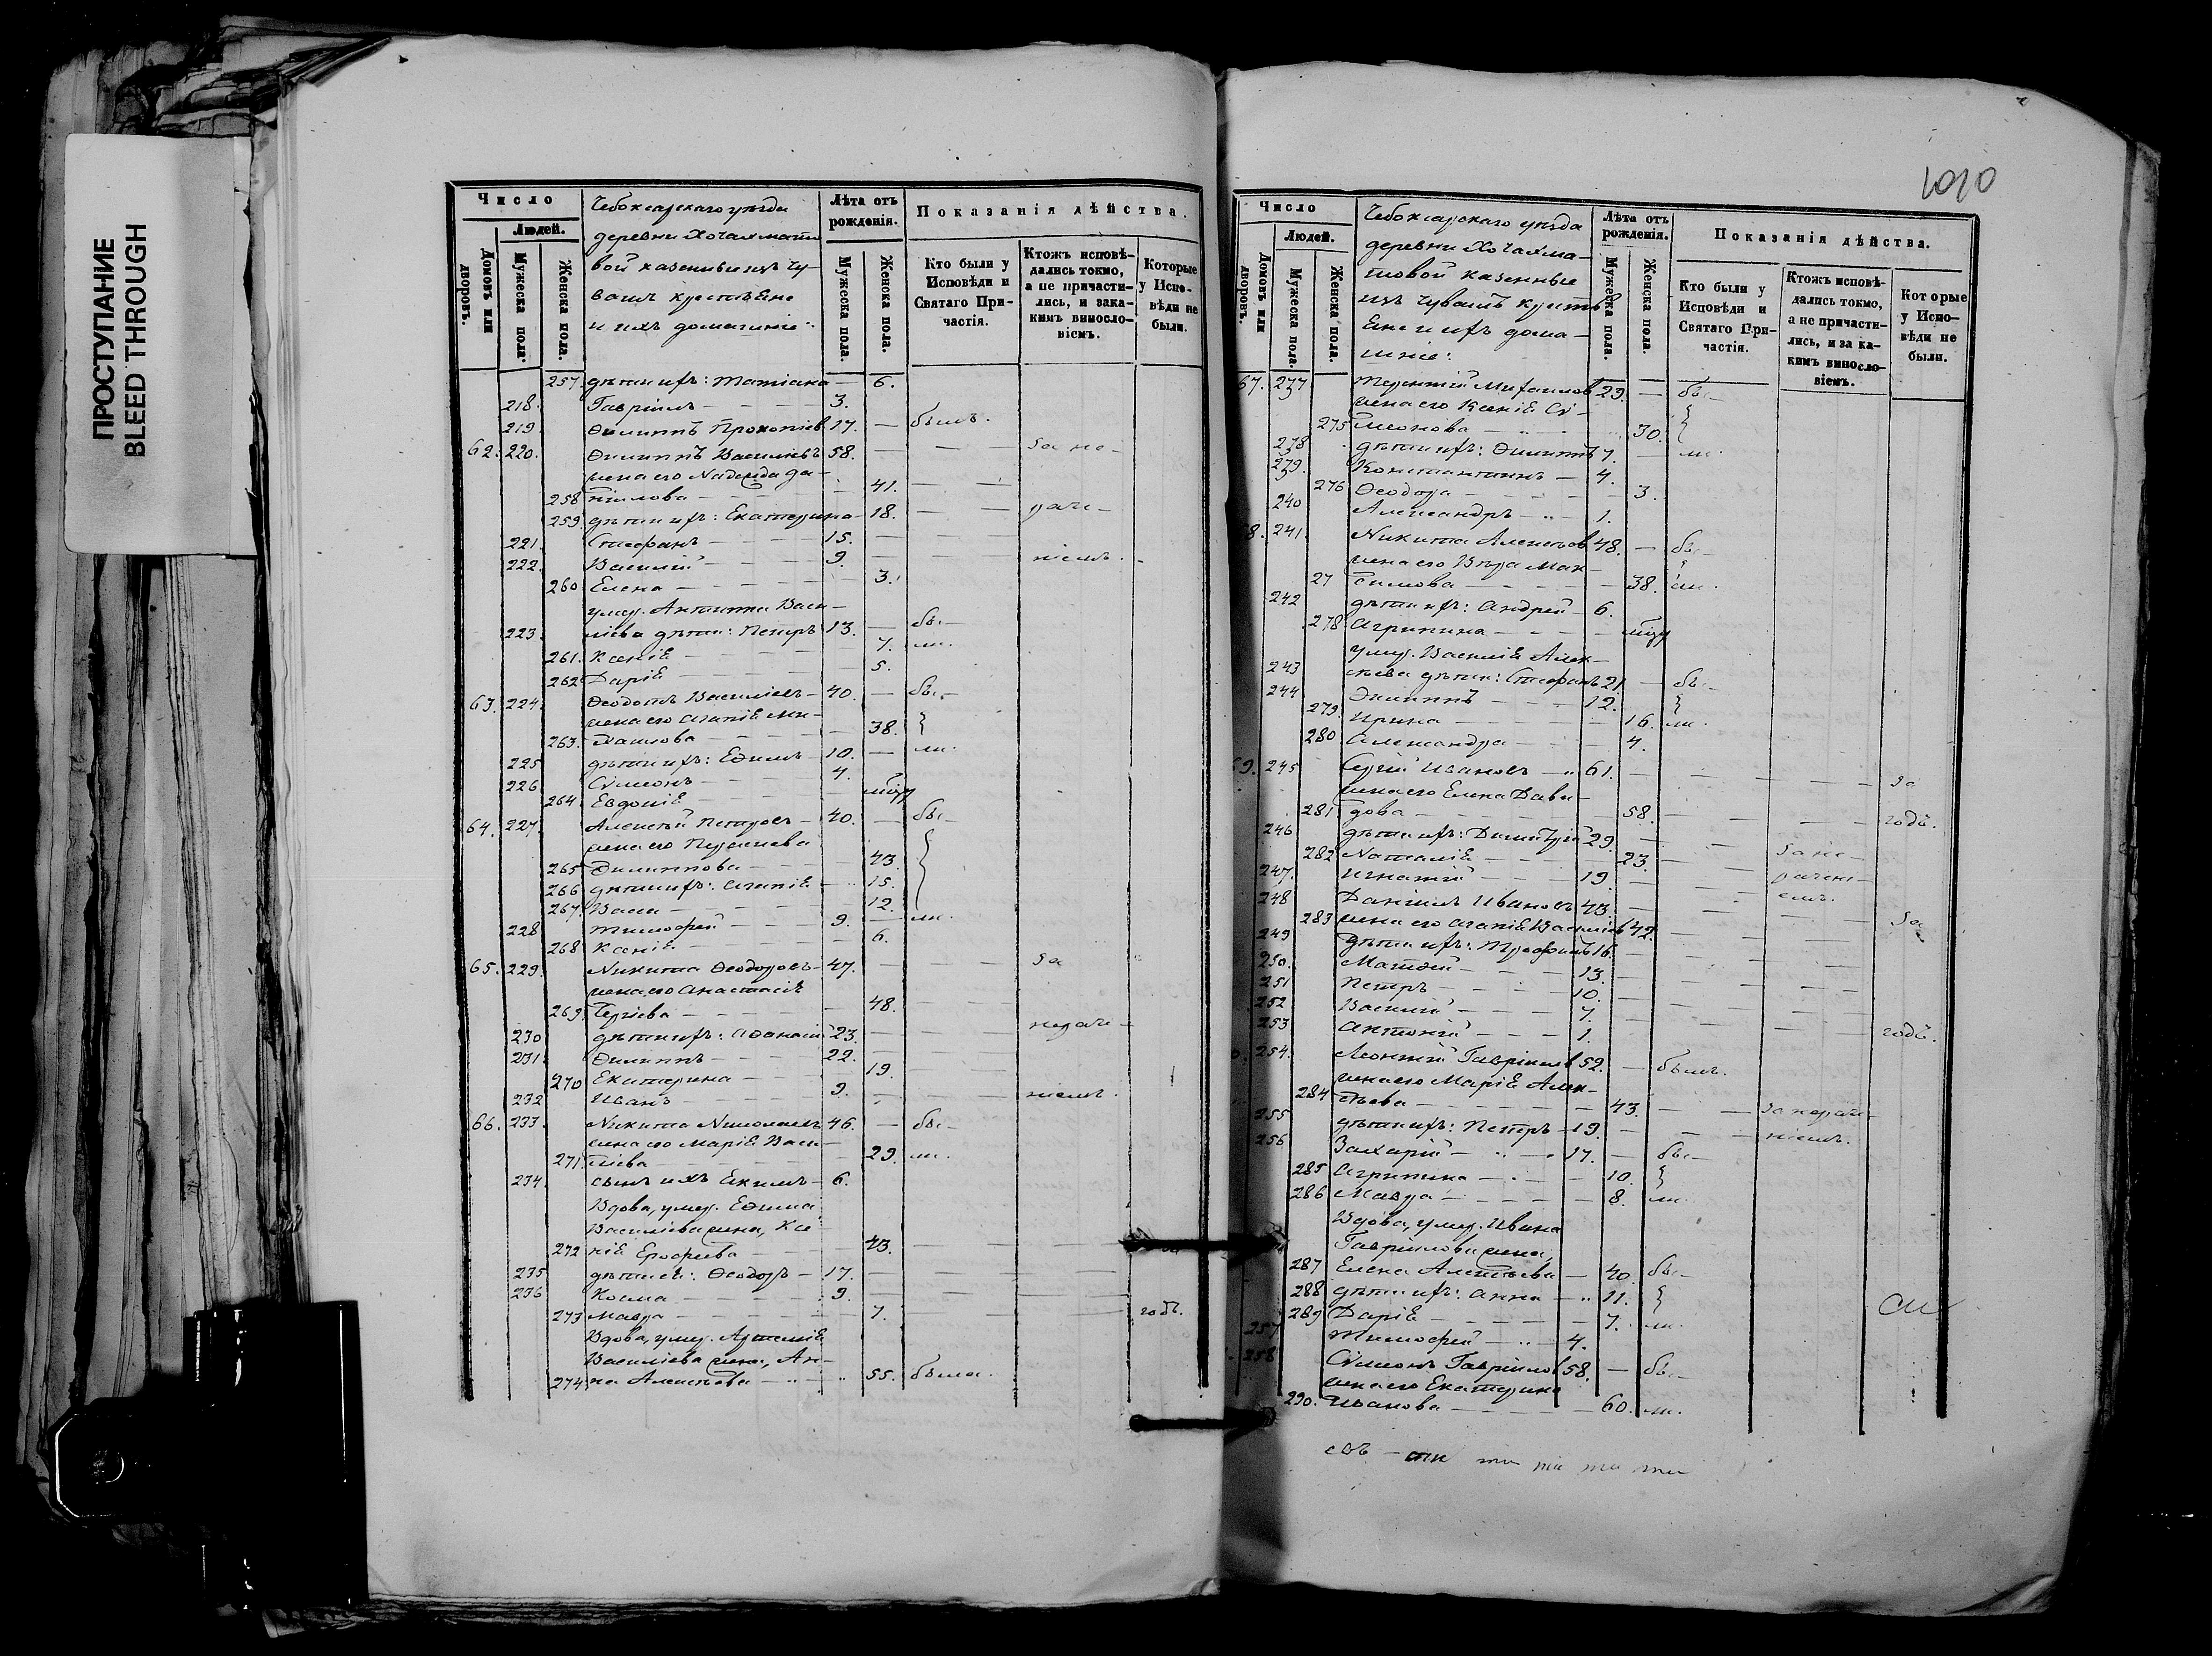 ПРОСТУПАНИЕ
BLEED THROUGH
Число
Людей.
Домовъ или дворовъ.
Мужеска пола.
Женска пола.
Чебоксарскаго уѣзда
деревни Хочахмато
вой казенные изъ чу-
вашъ крестьяне
и ихъ домашніе:
Лѣта отъ рожденія.
Мужеска пола.
Женска пола.
Показанія дѣйства.
Кто были у Исповѣди и Святаго При-частія.
Ктожъ исповѣ-дались токмо, а не причасти-лись, и зака-кимъ виносло-віемъ.
Которые у Испо-вѣди не были.
257. дѣти ихъ: Татіана — 6.
218. Гавріилъ — 3.
219. Филиппъ Прокопіев 17. — былъ.
62. 220. Филиппъ Васильевъ 58. — за не-
жена его Надежда Да-
258 ніилова — 41.
259. дѣти ихъ: Екатерина — 18. — раче-
221. Стефанъ — 15.
222. Василій — 9. — ніемъ.
260 Елена — 3.
умер. Антипа Васи-
223. ліева дѣти: Петръ 13. — бы-
261. Ксенія — 7. ли.
262 Дарія — 5.
63. 224. Феодотъ Васильевъ — 40. — бы-
жена его Агапія Ми-
263. хаилова — 38.
225 дѣти ихъ: Ефимъ 10. — ли.
226 Сѵмеонъ — 4.
264. Евдокія —
64. 227. Алексѣй Петровъ — 40. — бы-
жена его
265 Филиппова — 43.
266 дѣти ихъ: Агапія — 15.
267. Васса — 12.
228 Тимофей — 9. — ли.
268 Ксенія — 6.
65. 229. Никита Феодоровъ — 47. — за
жена его Анастасія
269. Сергіева — 48.
230 дѣти ихъ: Афанасій 23. — нераче-
231. Филиппъ — 22.
270 Екатерина — 19.
232 Иванъ — 9. — ніемъ.
66. 233. Никита Николаевъ 46. — бы-
жена его Марія Васи-
271. ліева — 29. ли.
234. сынъ ихъ Екимъ — 6.
Вдова, умер. Ефима
Васильева жена, Ксе
272 нія Ерофеева — 43.
235 дѣти ея: Феодоръ — 17.
236 Косма — 9.
273 Мавра — 7. — годъ.
Вдова, умер. Артемія
Васильева жена, Ан-
274 на Алексѣева — 55. была.
1010
Число
Людей.
Домовъ или дворовъ.
Мужеска пола.
Женска пола.
Чебоксарскаго уѣзда
деревни Хочахма-
товой казенные
изъ чувашъ кресть
яне и ихъ дома-
шніе:
Лѣта отъ рожденія.
Мужеска пола.
Женска пола.
Показанія дѣйства.
Кто были у Исповѣди и Святаго При-частія.
Ктожъ исповѣ-дались токмо, а не причасти-лись, и за ка-кимъ виносло-віемъ.
Которые у Испо-вѣди не были.
67. 237 Терентій Михаилов 29. — бы-
жена его Ксенія Сѵ-
275 меонова — 30.
238 дѣти ихъ: Филиппъ 7. — ли.
239. Константинъ — 4.
276 Феодора — 3.
240 Александръ — 1.
8. 241. Никита Алексѣев 48. — бы-
жена его Вѣра Мак-
27 симова — 38. ли.
242 дѣти ихъ: Андрей — 6.
278 Агрипина —
умер. Василія Алек-
243 сѣева дѣти: Стефанъ 21 — бы-
244 Филиппъ — 12.
279. Ирина — 16. ли.
280 Александра — 4.
9. 245 Сергій Ивановъ — 61. — за
жена его Елена Дави-
281 дова — 58. — годъ.
246 дѣти ихъ: Димитрій 29. — за не-
282 Наталія — 23. — рачені-
247. Игнатій — 19. — емъ.
248 Даніилъ Ивановъ 43. — за
283 жена его Агапія Васильев 42.
249 дѣти ихъ: Трофимъ 16.
250. Матфей — 13.
251 Петръ — 10.
252 Василій — 7.
253 Антоній — 1. — годъ.
0. 254. Леонтій Гавріилов 52. — былъ.
жена его Марія Алек-
284 сѣева — 43. — за нераче-
255 дѣти ихъ: Петръ — 19. — ніемъ.
256 Захарій — 17. — бы-
285 Агрипина — 10.
286 Мавра — 8. ли.
Вдова, умер. Ивана
Гавріилова жена,
287 Елена Алексѣева — 40. бы-
288 дѣти ихъ: Анна — 11.
289 Дарія — 7. ли.
257 Тимофей — 4.
258 Сѵмеонъ Гавріилов 58. — бы-
жена его Екатерина
290. Иванова — 60. ли.